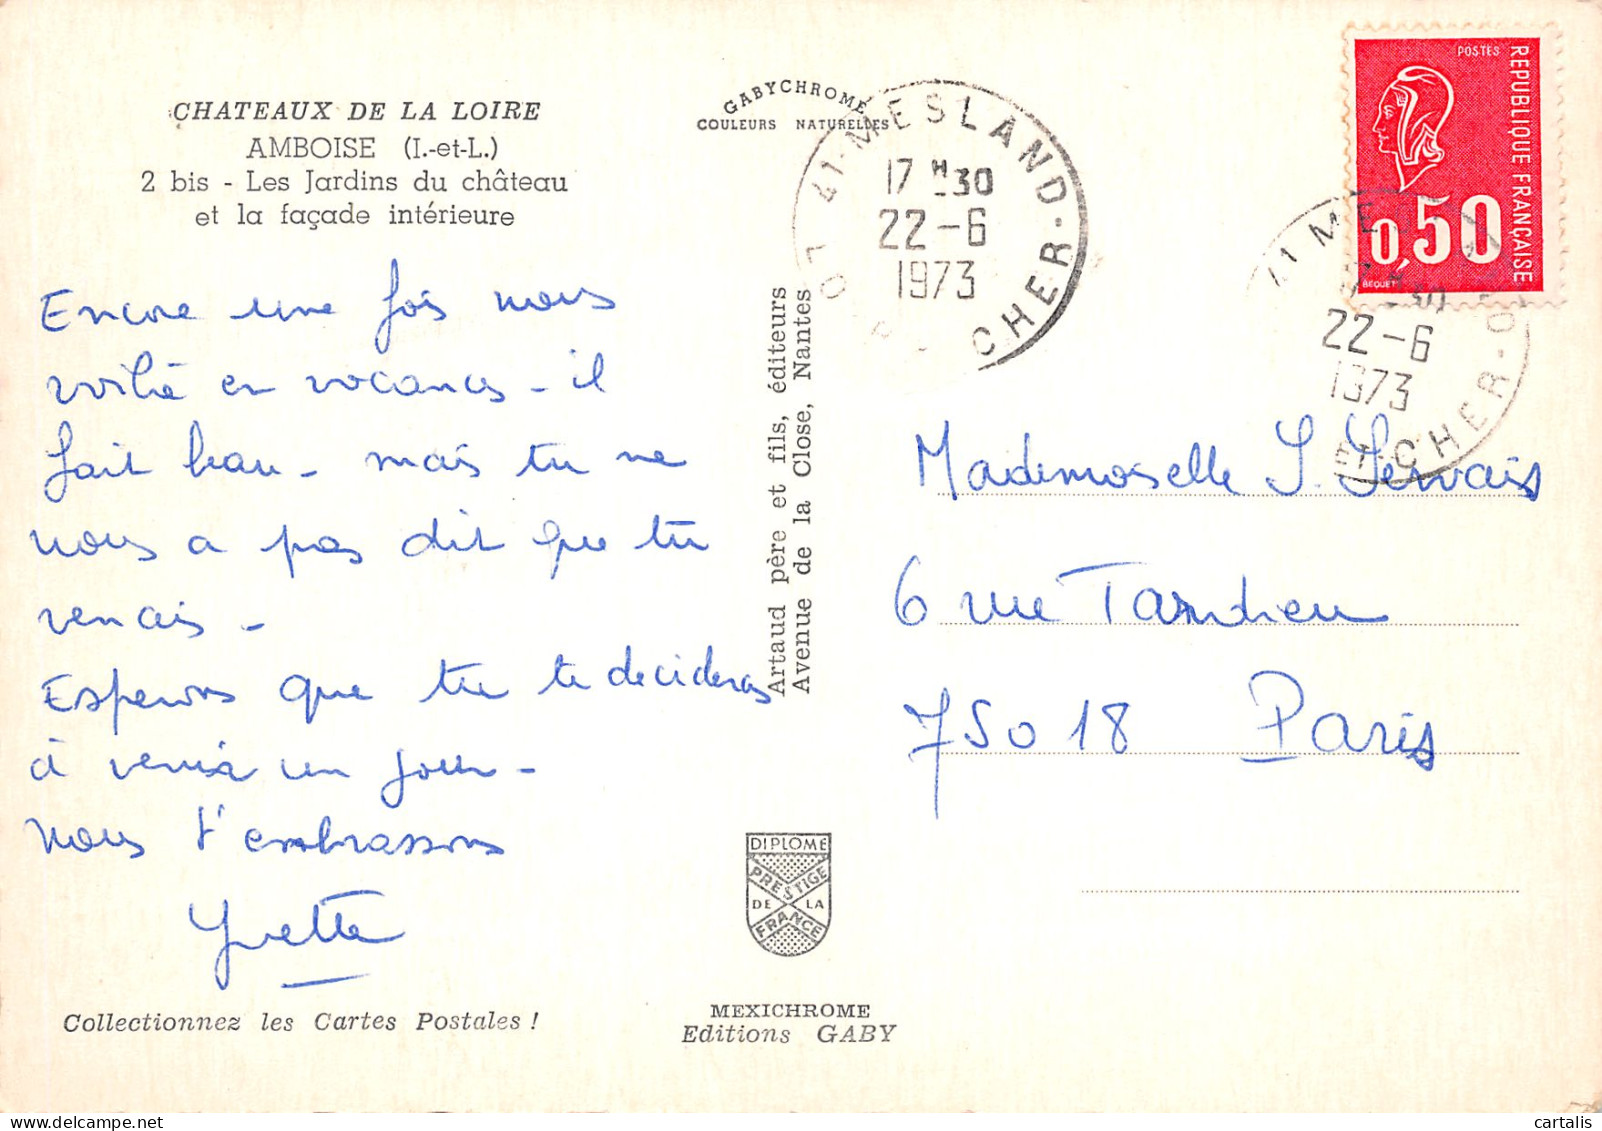 CHATEAUX DE LA LOIRE
AMBOISE (I.-et-L.)
2 bis - Les Jardins du château
et la façade intérieure
Encore une fois nous
voilà en vacances - il
fait beau - mais tu ne
nous a pas dit que tu
venais -
Esperons que tu te decideras
à venir un jour -
Nous t'embrassons
Yvette
Collectionnez les Cartes Postales !
GABYCHROME
COULEURS NATURELLES
Artaud père et fils, éditeurs
Avenue de la Close, Nantes
DIPLOME
PRESTIGE
DE LA
FRANCE
MEXICHROME
Editions GABY
41-MESLAND-
17 H 30
22-6
1973
CHER
POSTES
REPUBLIQUE FRANÇAISE
0,50
BEQUET
41 ME
22-6
1973
ET-CHER
Mademoiselle S. Servais
6 rue Tardieu
75018 Paris
cartalis